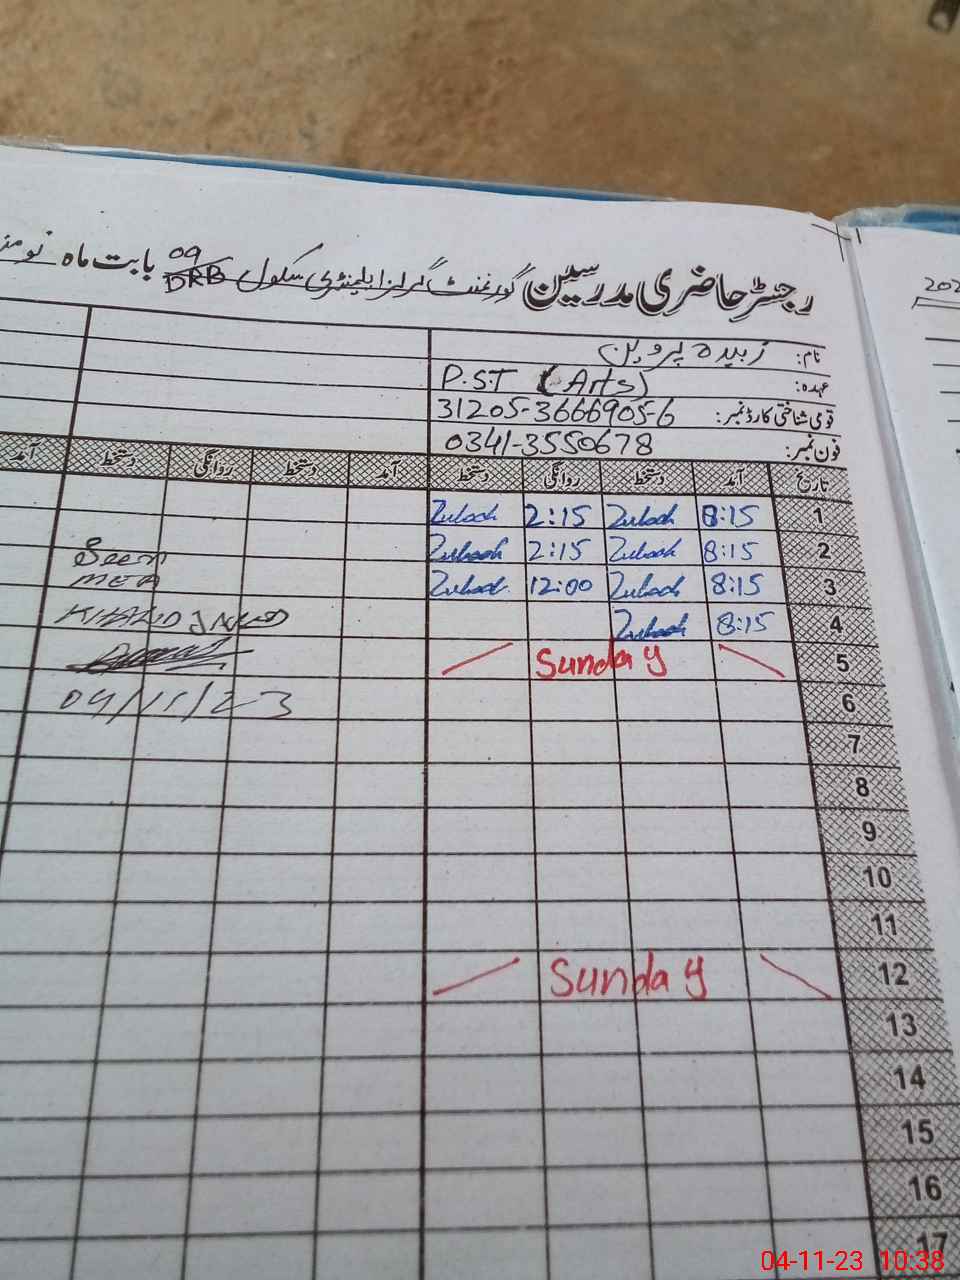 رجسٹر حاضری مدرسین گورنمنٹ گرلز ایلیمنٹری سکول 09 DRB بابت ماہ
202
نام: زبیدہ پروین
عہدہ: P.S.T (Arts)
قومی شناختی کارڈ نمبر: 31205-3666905-6
فون نمبر: 0341-3550678
تاریخ آمد دستخط روانگی دستخط آمد دستخط روانگی دستخط آمد
1 8:15 Zubach 2:15 Zubach
2 8:15 Zubach 2:15 Zubach
3 8:15 Zubach 12:00 Zubach
4 8:15 Zubach
5 Sunday
6
7
8
9
10
11
12 Sunday
13
14
15
16
17
Seen
MEA
04/11/23
04-11-23 10:38